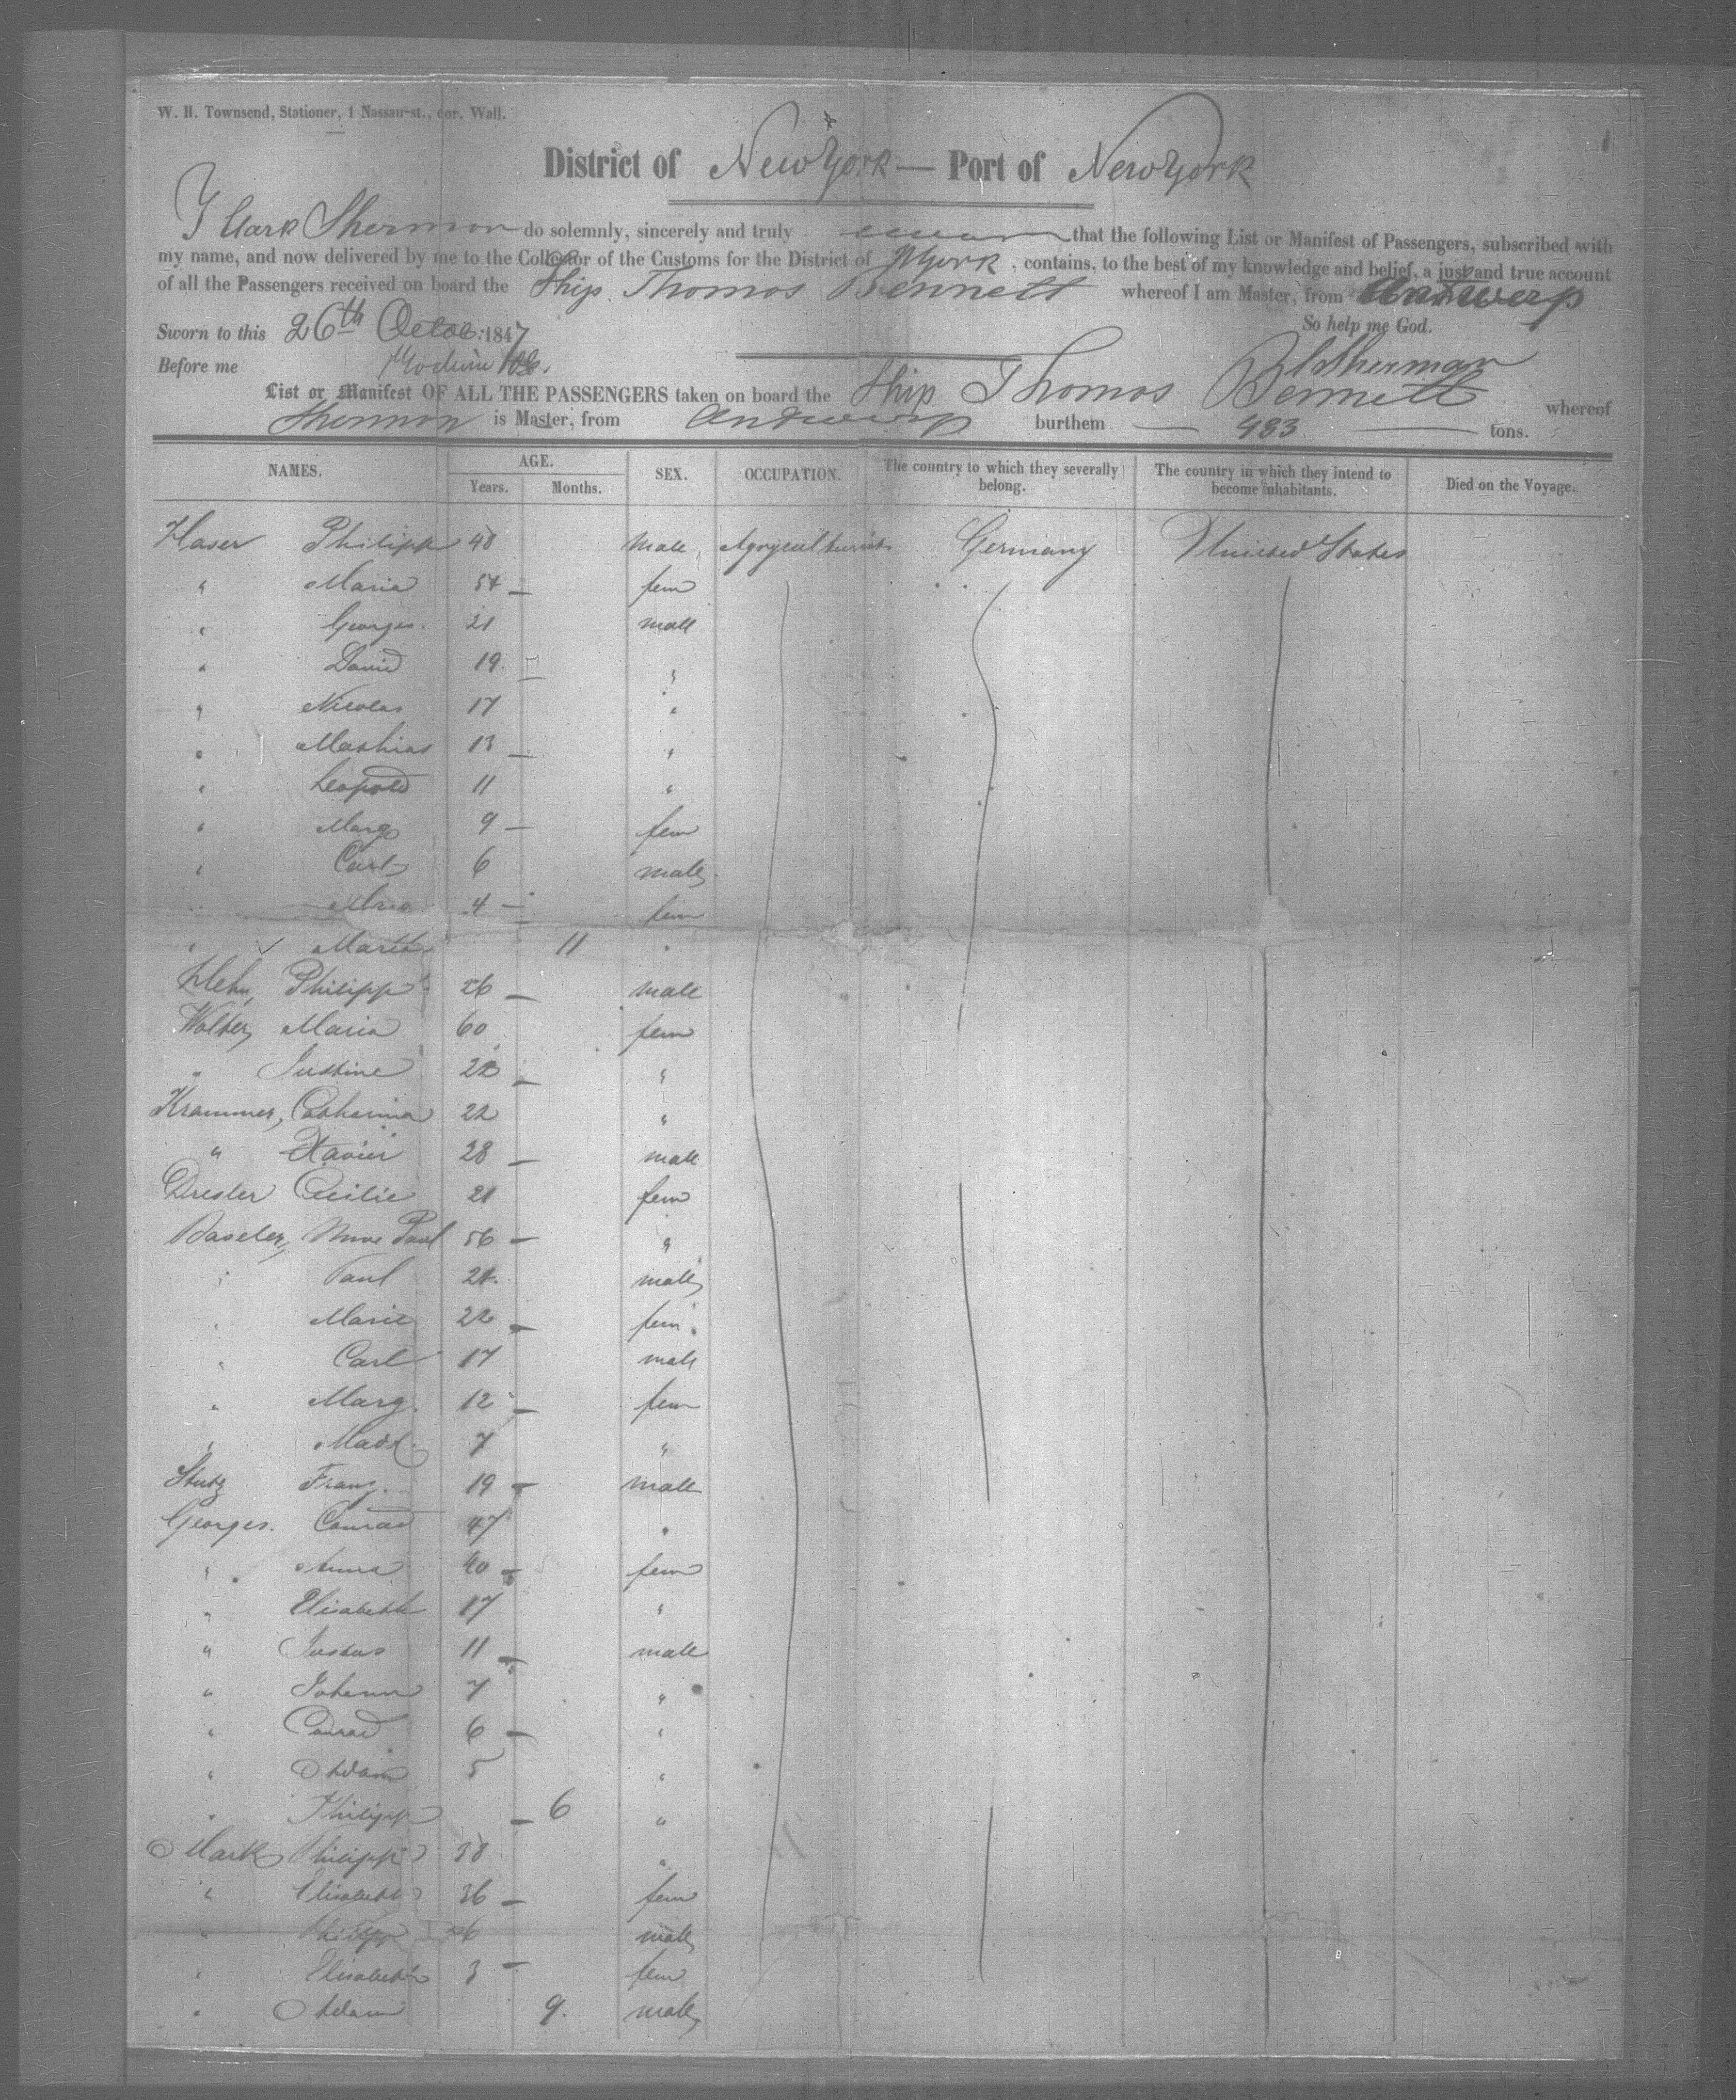 W. H. Townsend, Stationer, 1 Nassau-st., cor. Wall.
District of New York — Port of New York
I Clark Sherman do solemnly, sincerely and truly swear that the following List or Manifest of Passengers, subscribed with
my name, and now delivered by me to the Collector of the Customs for the District of NYork, contains, to the best of my knowledge and belief, a just and true account
of all the Passengers received on board the Ship Thomas Bennett whereof I am Master, from Antwerp
Sworn to this 26th Octob. 1847 So help me God.
Before me C Sherman
List or Manifest OF ALL THE PASSENGERS taken on board the Ship Thomas Bennett whereof
Sherman is Master, from Antwerp burthem — 483 — tons.
NAMES. AGE. Years. Months. SEX. OCCUPATION. The country to which they severally belong. The country in which they intend to become inhabitants. Died on the Voyage.
Haser Philipp 48 male Agryculturist Germany United States
" Maria 54 fem
" Georges 21 male
" David 19 "
" Nicolas 17 "
" Mathias 13 "
" Leopold 11 "
" Marg 9 fem
" Carl 6 male
" 4 fem
" Martha 11 "
Hehn, Philipp 26 male
Walter, Maria 60 fem
" Justine 22 "
Krammer, Catharina 22 "
" Xavier 28 male
Drester Cecilie 21 fem
Baseler, Mme Paul 56 "
" Paul 24 male
" Marie 22 fem
" Carl 17 male
" Marg. 12 fem
" Madl. 7 "
Stutz Franz. 19 male
Georges. Conrad 47 "
" Anna 40 fem
" Elisabeth 17 "
" Justus 11 male
" Johann 7 "
" Conrad 6 "
" Adam 5 "
" Philipp 6 "
Mark Philipp 38 "
" Elisabeth 36 fem
" Philipp male
" Elisabeth 3 fem
" Adam 9. male